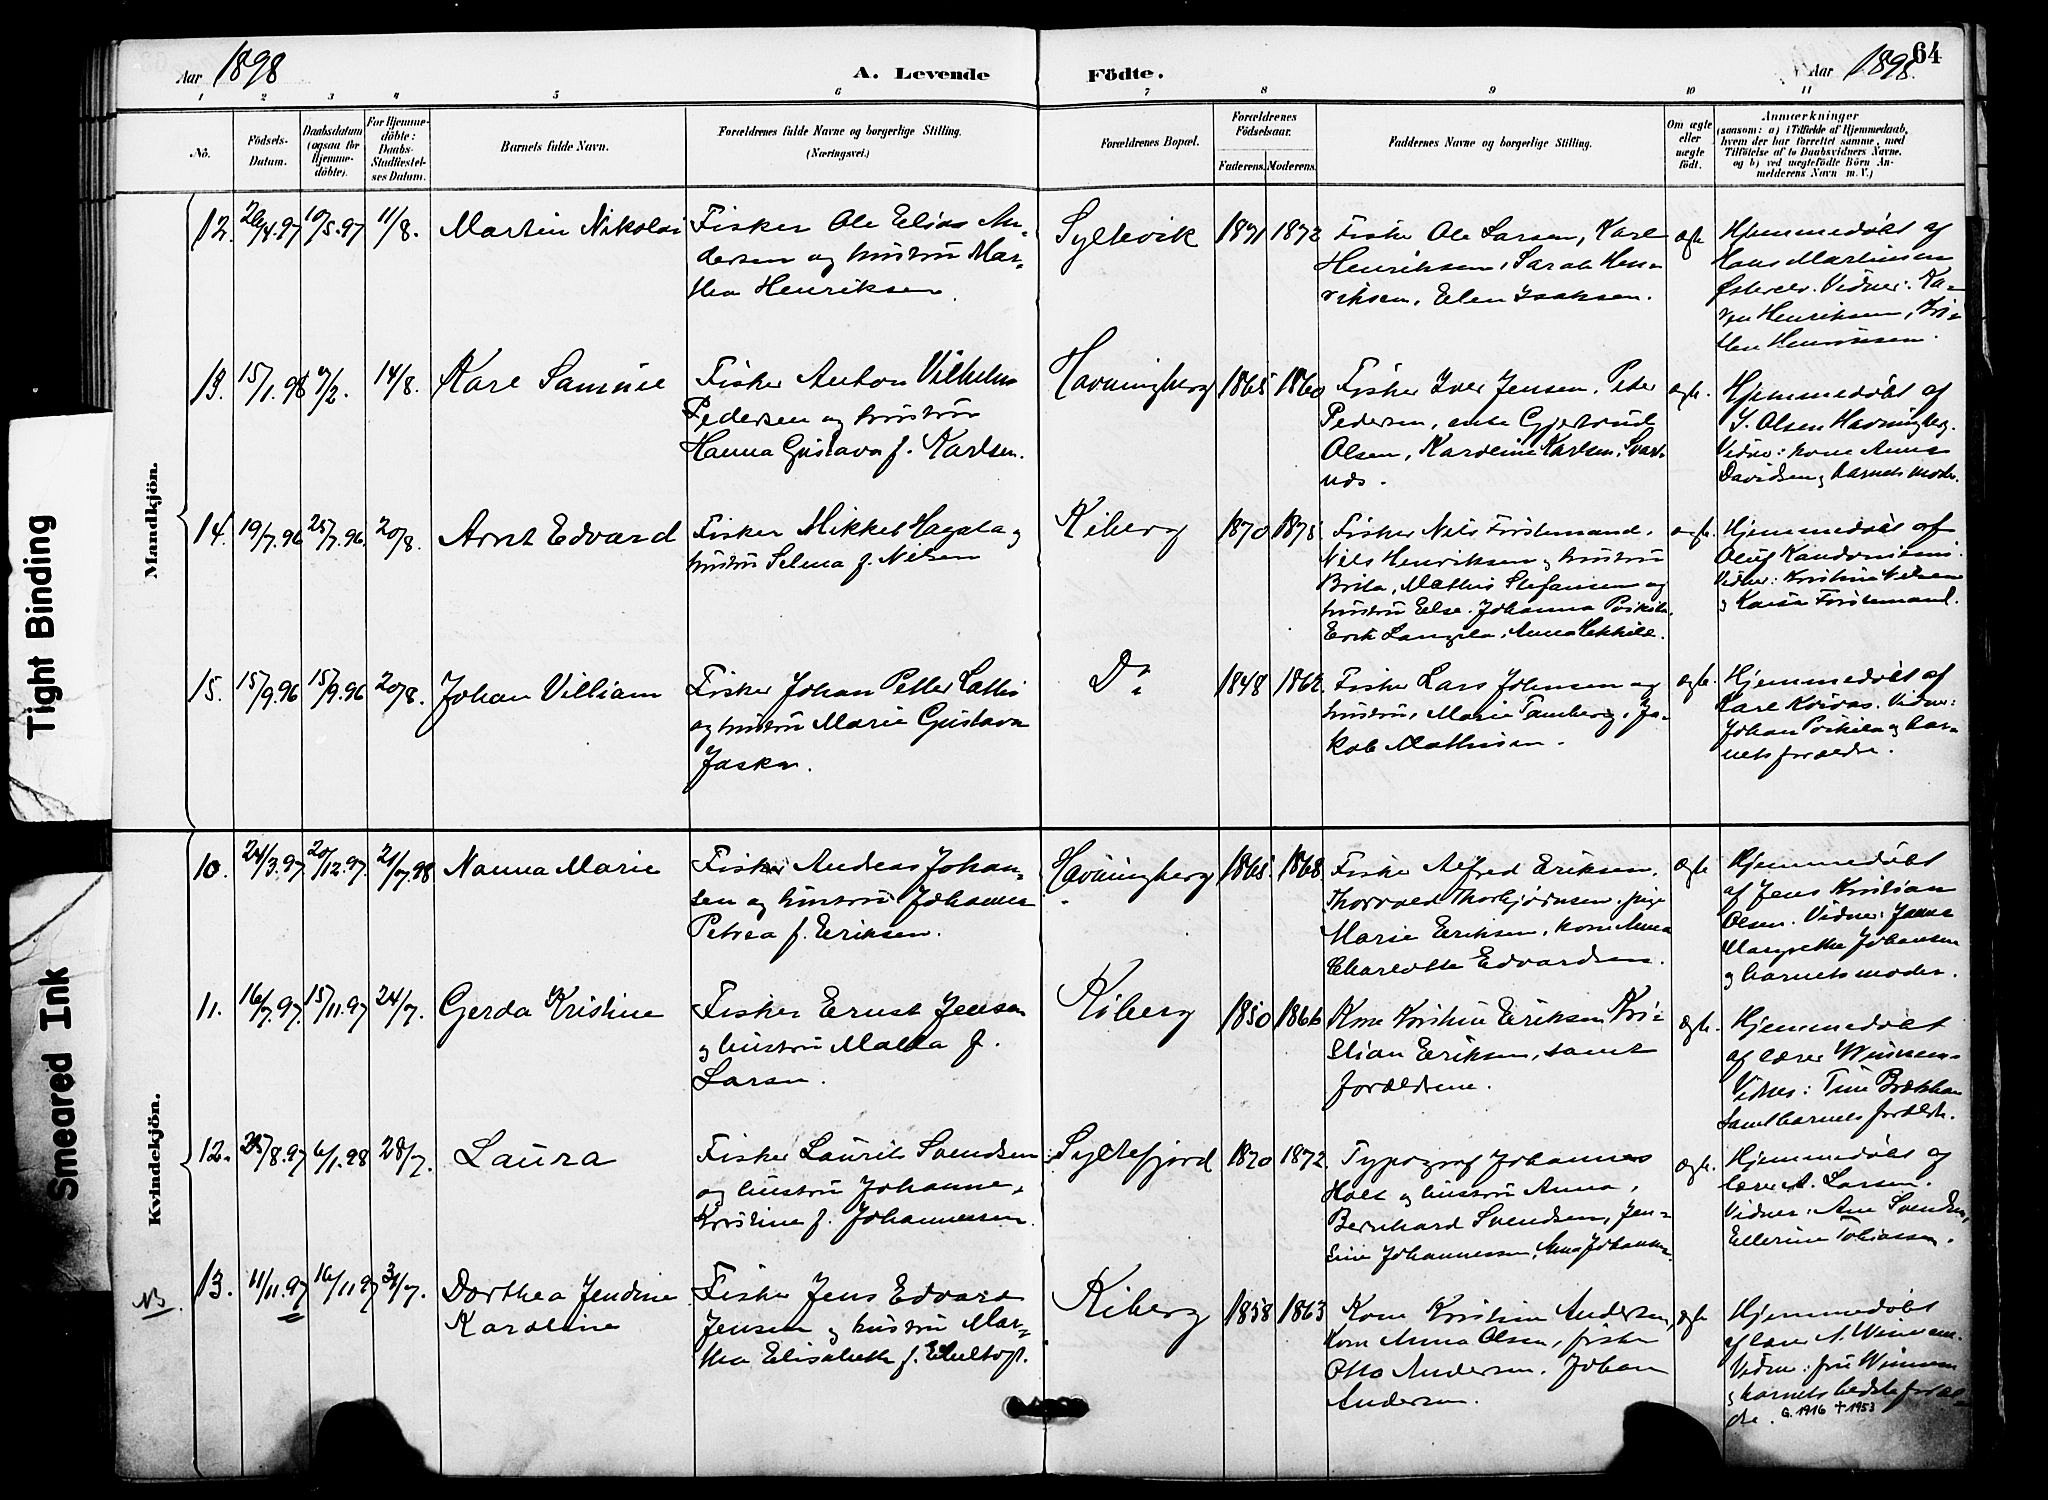 64
Aar 1898
A. Levende
Födte.
Aar 1898.
1 2 3 4 5 6 7 8 9 10 11
No.
Födsels-
Datum.
Daabsdatum
(ogsaa for
Hjemme-
döbte).
For Hjemme-
döbte:
Daabs-
Stadfæstel-
ses Datum.
Barnets fulde Navn.
Forældrenes fulde Navne og borgerlige Stilling.
(Næringsvei.)
Forældrenes Bopæl.
Forældrenes
Födselsaar.
Faderens. Moderens.
Faddernes Navne og borgerlige Stilling.
Om ægte
eller
uægte
födt.
Anmærkninger
(saasom: a) i Tilfælde af Hjemmedaab,
hvem der har forrettet samme, med
Tilföielse af to Daabsvidners Navne,
og b) ved uægtefödte Börn An-
melderens Navn m. V.)
Mandkjön.
12. 20/4.97 10/5.97 11/8. Martin Nikolai
Fisker Ole Elias An-
dersen og hustru Mar-
tha Henriksen
Syltevik 1871 1872
Fisker Ole Larsen, Karl
Henriksen, Sarah Hen-
riksen, Elen Isaksen.
ægte
Hjemmedøbt af
Hans Martinsen
Vidner: Ka-
ren Henriksen,
Henriksen.
13. 15/1.98 7/2. 14/8. Karl Samuel
Fisker Anton Vilhelm
Pedersen og hustru
Hanna Gustava f. Karlsen.
Havningberg 1865 1860
Fisker Iver Jensen, Peder
Pedersen, enke Gjertrud
Olsen, Karoline Karlsen,
ægte.
Hjemmedøbt af
J. Olsen Havningberg.
Vidner: kone Anna
Davidsen og barnets moder.
14. 19/7.96 25/7.96. 20/8. Arnt Edvard
Fisker Mikkel Hagala og
hustru Selma f. Nilsen
Kiberg 1870 1875
Fisker Nils Forstemand,
Nils Henriksen og hustru
Brita, Mathis Stefansen og
hustru Else. Johanna
Erik Anna
ægte.
Hjemmedøbt af
Oluf
Vidner: Kristine Nilsen
og Kaisa Forstemand.
15. 15/9.96 15/9.96 20/8. Johan Villiam
Fisker Johan Petter
og hustru Marie Gustava
Jaska.
Do 1848 1862.
Fisker Lars Johnsen og
hustru, Marie Tamberg, Ja-
kob Mathisen.
ægte.
Hjemmedøbt af
Karl Vidner:
Johan og bar-
nets forældre.
Kvindekjön.
10. 24/3.97 20/12.97. 21/7.98 Nanna Marie
Fisker Andreas Johan-
sen og hustru Johanna
Petrea f. Eriksen.
Havningberg 1865. 1868.
Fisker Alfred Eriksen,
Thorvald Thorbjørnsen, pige
Marie Eriksen, kone Anna
Charlotte Edvardsen.
ægte
Hjemmedøbt
af Jens Kristian
Olsen. Vidner:
Margrethe Johansen
og barnets moder.
11. 16/7.97. 15/11.97 24/7. Gerda Kristine
Fisker Ernst Jensen
og hustru Malla f.
Larsen.
Kiberg 1850 1866
Kone Kristine Eriksen, Kri-
stian Eriksen, samt
forældrene.
ægte.
Hjemmedøbt
af lærer
Vidner: Tine
samt barnets forældre.
12. 25/8.97 6/1.98 28/7. Laura
Fisker Laurits Svendsen
og hustru Johanne
Kristine f. Johannesen.
Syltefjord 1870 1872.
Typograf Johannes
Holt og hustru Anna,
Bernhard Svendsen, Jen-
sine Johannessen, Anna
ægte.
Hjemmedøbt af
lærer A. Larsen.
Vidner: Ane Svendsen,
Ellerine Tobiassen.
NB. 13. 11/11.97 16/11.97 31/7. Dorthea Jendine
Karoline
Fisker Jens Edvard
Jensen og hustru Mar-
tha Elisabeth f.
Kiberg 1858 1863
Kone Kristine Andersen,
kone Anna Olsen, fisker
Otto Andersen, Johan
Andersen.
ægte
Hjemmedøbt
af lærer A.
Vidner: fru
og barnets bedsteforæl-
dre. G. 1916 † 1953
Tight Binding
Smeared Ink